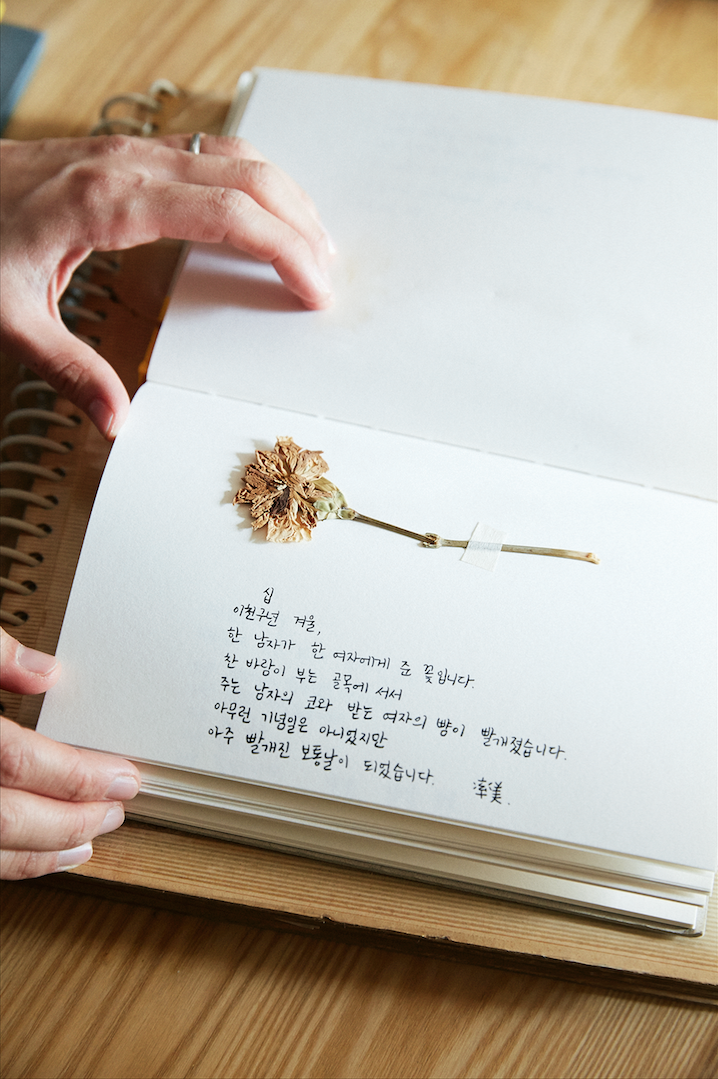 십
이천구년 겨울,
한 남자가 한 여자에게 준 꽃입니다.
찬 바람이 부는 골목에 서서
주는 남자의 코와 받는 여자의 뺨이 빨개졌습니다.
아무런 기념일은 아니었지만
아주 빨개진 보통날이 되었습니다. 率美.